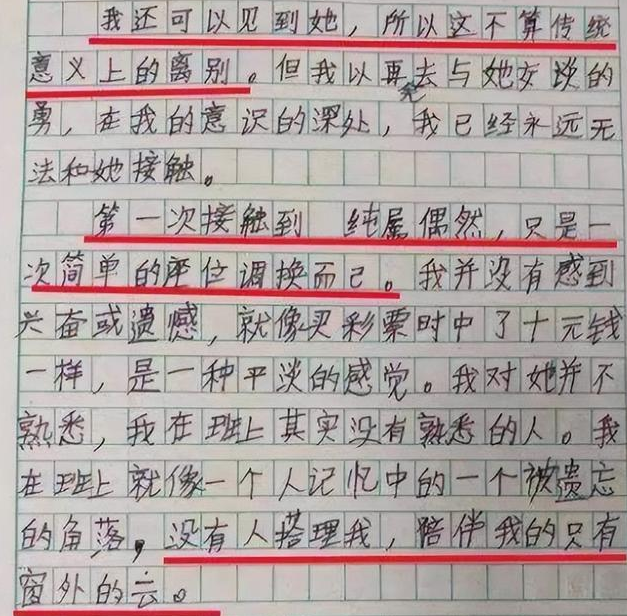 我还可以见到她，所以这不算传统
意义上的离别。但我以再去与她交谈的
勇，在我的意识的深处，我已经永远无
法和她接触。
第一次接触到 纯属偶然，只是一
次简单的座位调换而已。我并没有感到
兴奋或遗憾，就像买彩票时中了十元钱
一样，是一种平淡的感觉。我对她并不
熟悉，我在班上其实没有熟悉的人。我
在班上就像一个人记忆中的一个被遗忘
的角落，没有人搭理我，陪伴我的只有
窗外的云。